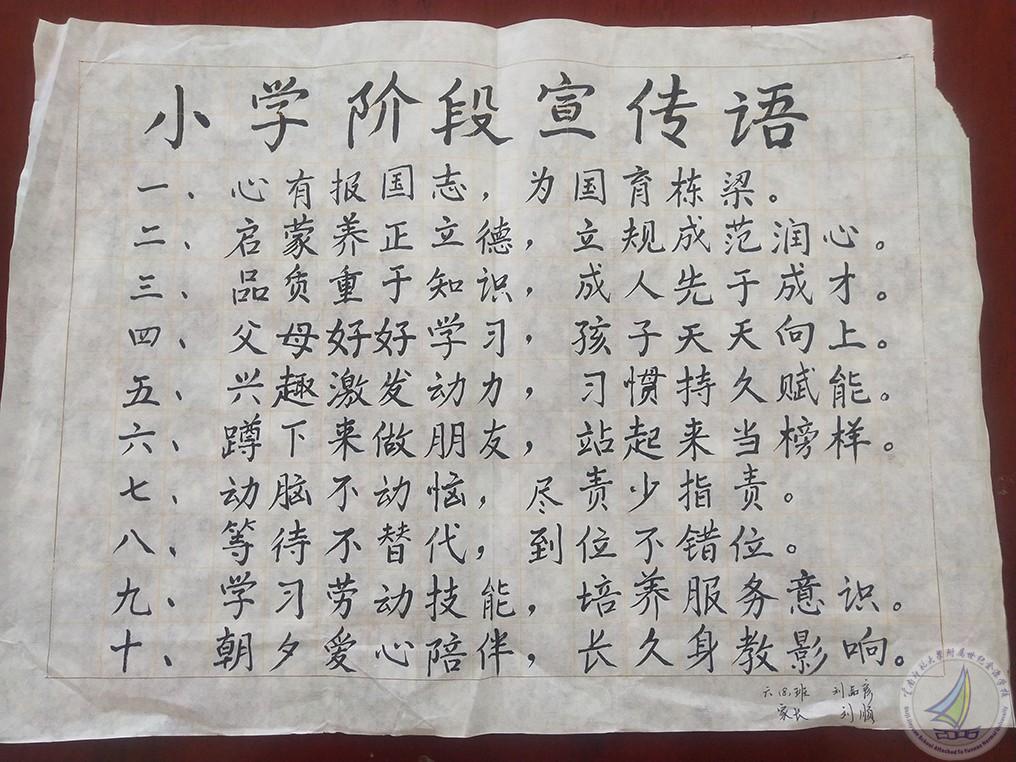 小学阶段宣传语
一、心有报国志，为国育栋梁。
二、启蒙养正立德，立规成范润心。
三、品质重于知识，成人先于成才。
四、父母好好学习，孩子天天向上。
五、兴趣激发动力，习惯持久赋能。
六、蹲下来做朋友，站起来当榜样。
七、动脑不动恼，尽责少指责。
八、等待不替代，到位不错位。
九、学习劳动技能，培养服务意识。
十、朝夕爱心陪伴，长久身教影响。
六 班 刘
家长 刘顺